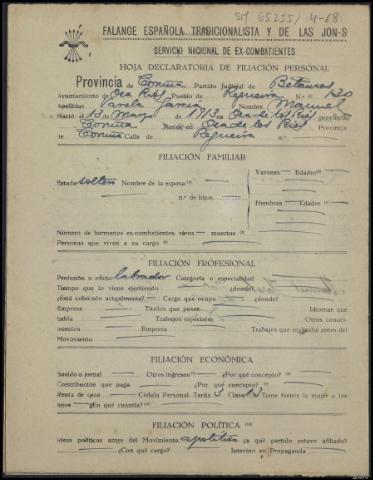 SM 65255/4-68
FALANGE ESPAÑOLA TRADICIONALISTA Y DE LAS JON-S
SERVICIO NACIONAL DE EX-COMBATIENTES
HOJA DECLARATORIA DE FILIACIÓN PERSONAL
Provincia de Coruña Partido Judicial de Betanzos
Ayuntamiento de Oza Rios Pueblo de Regueira N.º 130
Apellidos Varela García Nombre Manuel
Nació el 13 de Marzo de 1913 en Oza de los Rios
Coruña Reside en Oza de los Rios Provincia
de Coruña Calle de Regueira
FILIACIÓN FAMILIAR
Estado soltero Nombre de la esposa
Varones— Edades
n.º de hijos
Hembras Edades
Número de hermanos ex-combatientes, vivos muertos
Personas que viven a su cargo
FILIACIÓN PROFESIONAL
Profesión u oficio labrador Categoría o especialidad
Tiempo que lo viene ejerciendo ¿dónde?
¿Está colocado actualmente? Cargo que ocupa ¿dónde?
Empresa Títulos que posee Idiomas que
habla Trabajos especiales Otros conoci-
mientos Empresa Trabajos que realizaba antes del
Movimiento
FILIACIÓN ECONÓMICA
Sueldo o jornal Otros ingresos ¿Por qué concepto?
Contribución que paga ¿Por qué concepto?
Renta de casa Cédula Personal Tarifa 3 Clase 13 Tiene bienes la mujer o los
¿En qué cuantía?
FILIACIÓN POLÍTICA
Ideas políticas antes del Movimiento apolítico ¿a qué partido estuvo afiliado?
¿Con qué cargo? Intervino en Propaganda